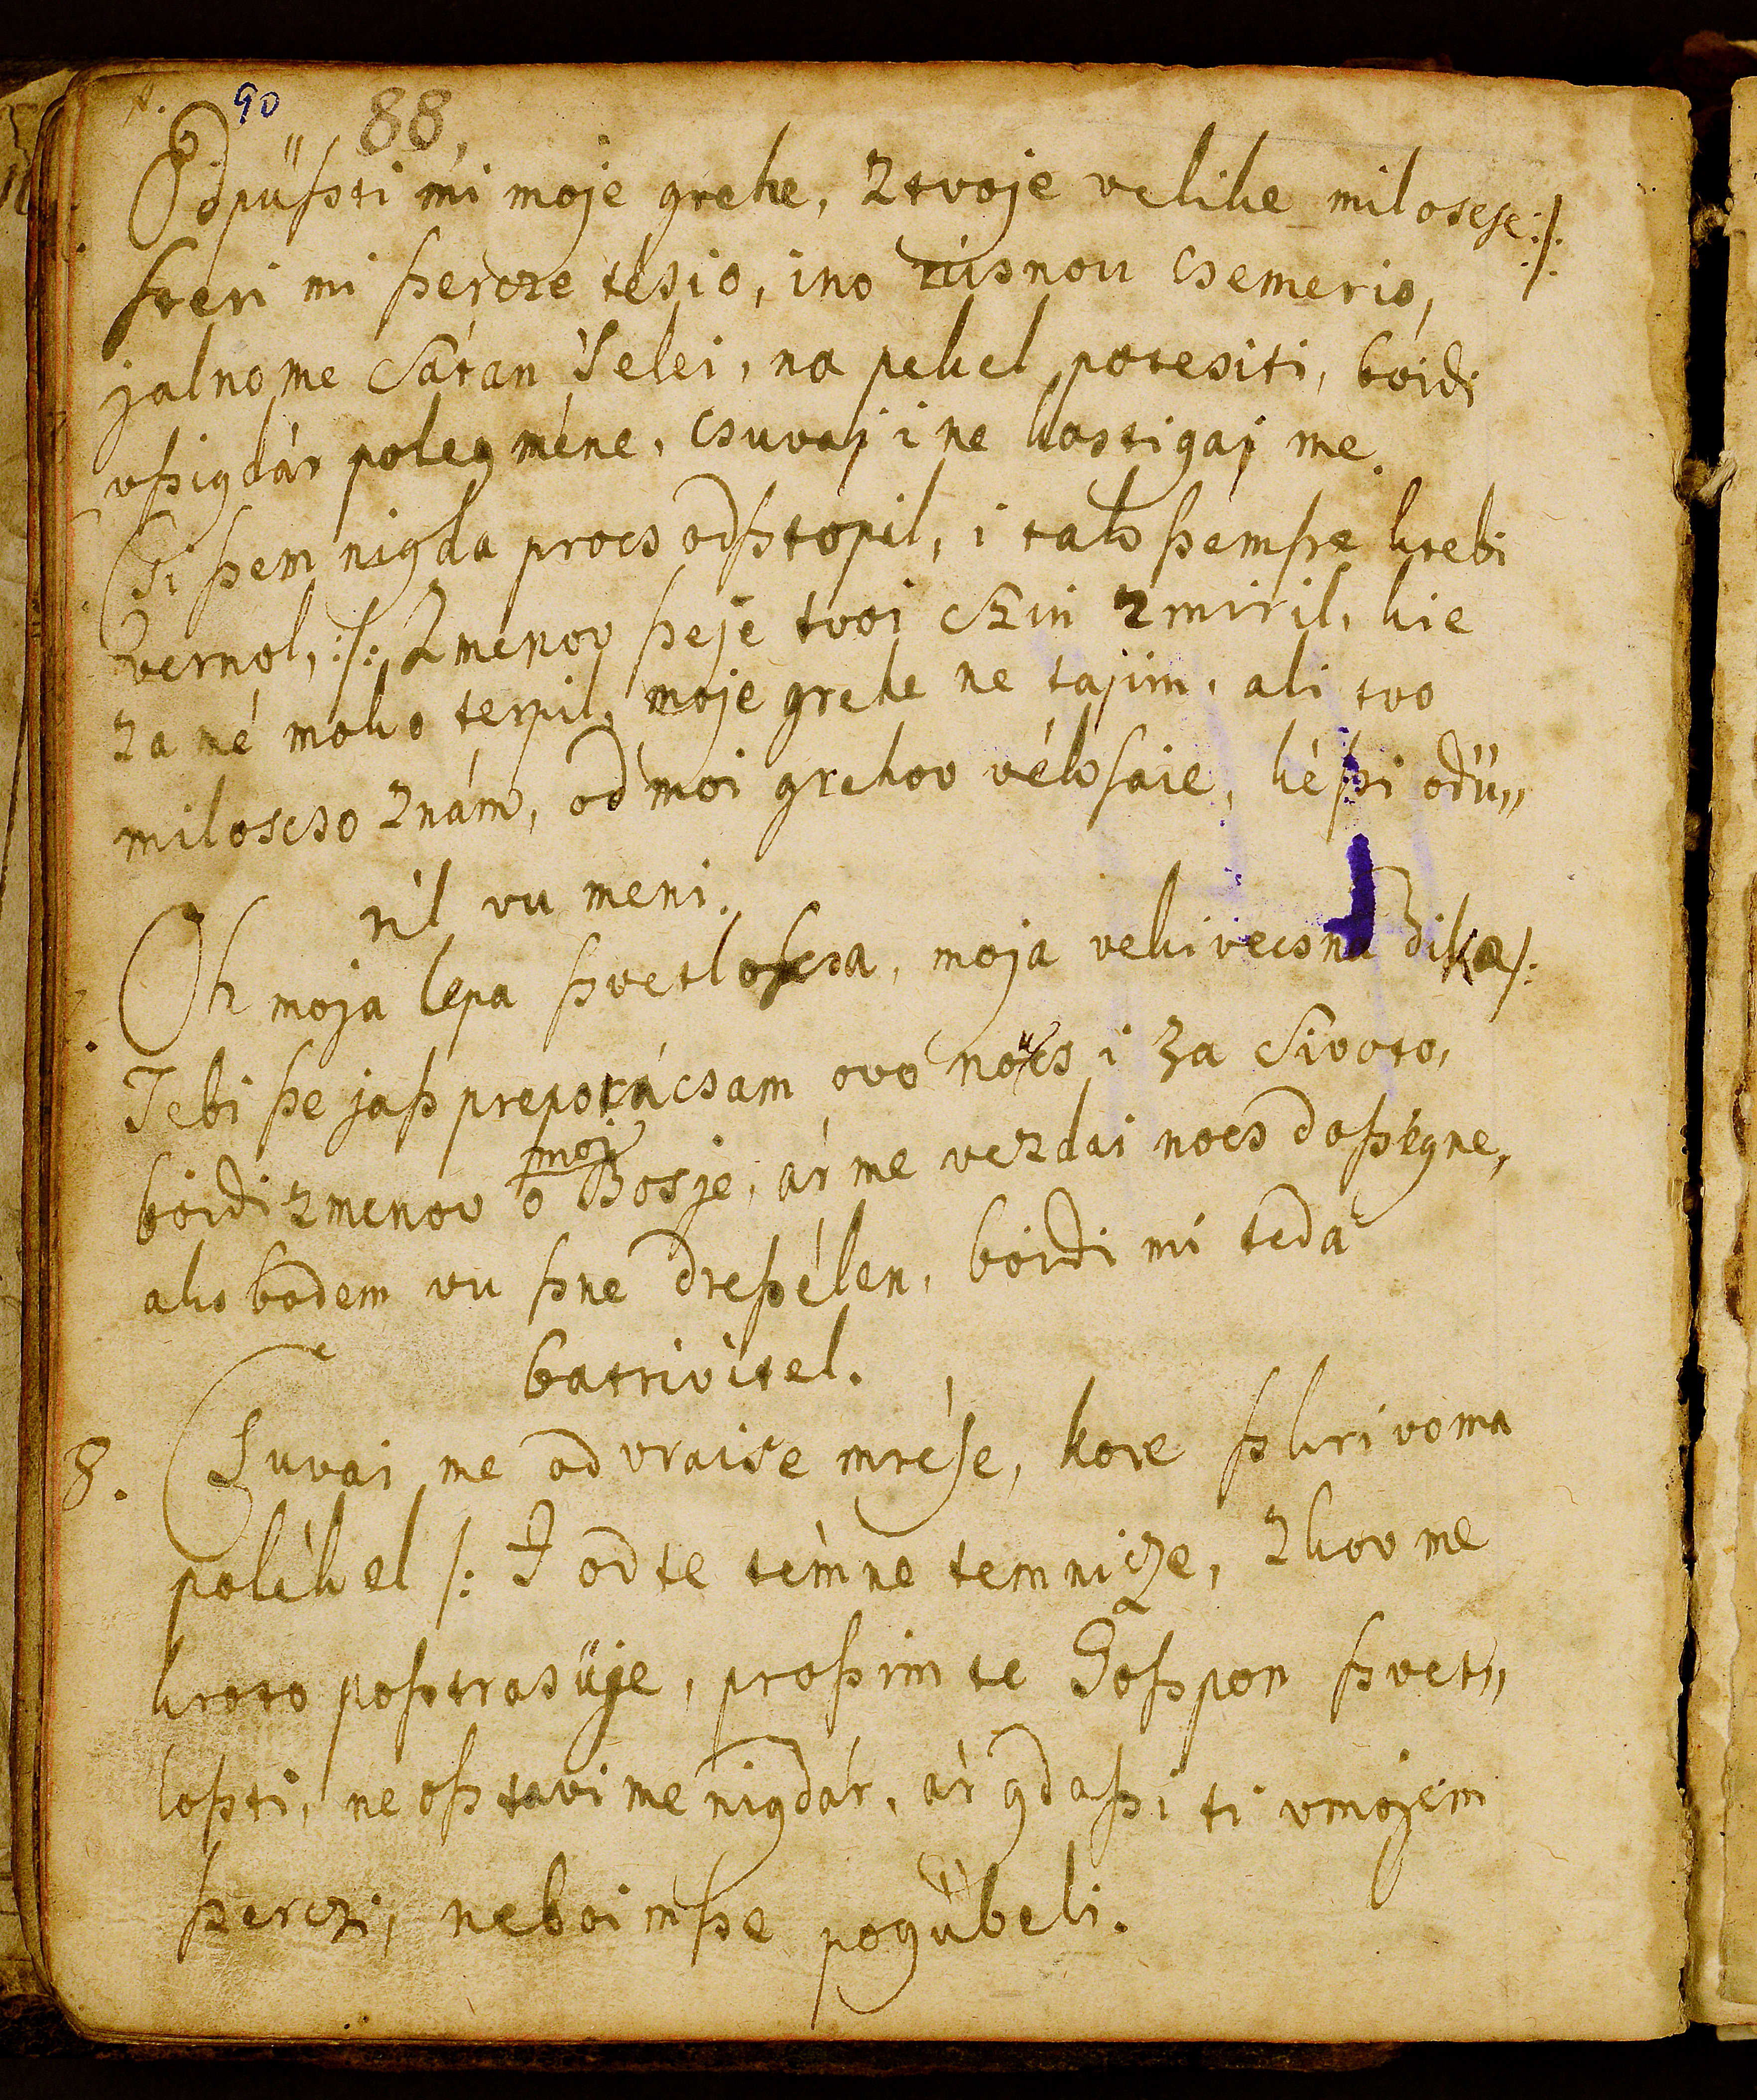 90 88.
Odpüſzti mi moje grehe, z tvoje velike miloscse :/:
ſteri mi ſzercze tésio, ino rúsnou csemerio,
jalno me Sátan 'selei, na pekel potesiti, boidi
vſzigdár poleg méne, csuvaj i ne kostigaj me.
Ti ſzem nigda procs odſztopil, i tak ſzemſze ktebi
vernol, :/: Zmenov ſzeje tvoi Szin zmiril, kie
za mé moko terpil, moje grehe ne tajim, ali tvo
miloscso znám, od moi grehov véksaie, kéſzi odü„
ril vu meni.
Oh moja lepa ſzvetloscsa, moja vekivecsna Dika /:
Tebi ſze jaſz preporácsam ovo nocs i za Sivoto,
boidi zmenov o moj Bosje, ár me vezdai nocs doſzégne,
ako bodem vu ſzne dreſzélen, boidi mi teda
batrivitel.
8. Csuvai me od vraise mrése, kore ſzkrivoma
polékel /: I od te témne temnicze, zkov me
kroto poſztrasüje, proſzim te Goſzpon ſzvet„
loſzti, ne oſztavi me nigdár, ár gda ſzi ti vmojem
ſzerczi, neboimſze pogübeli.